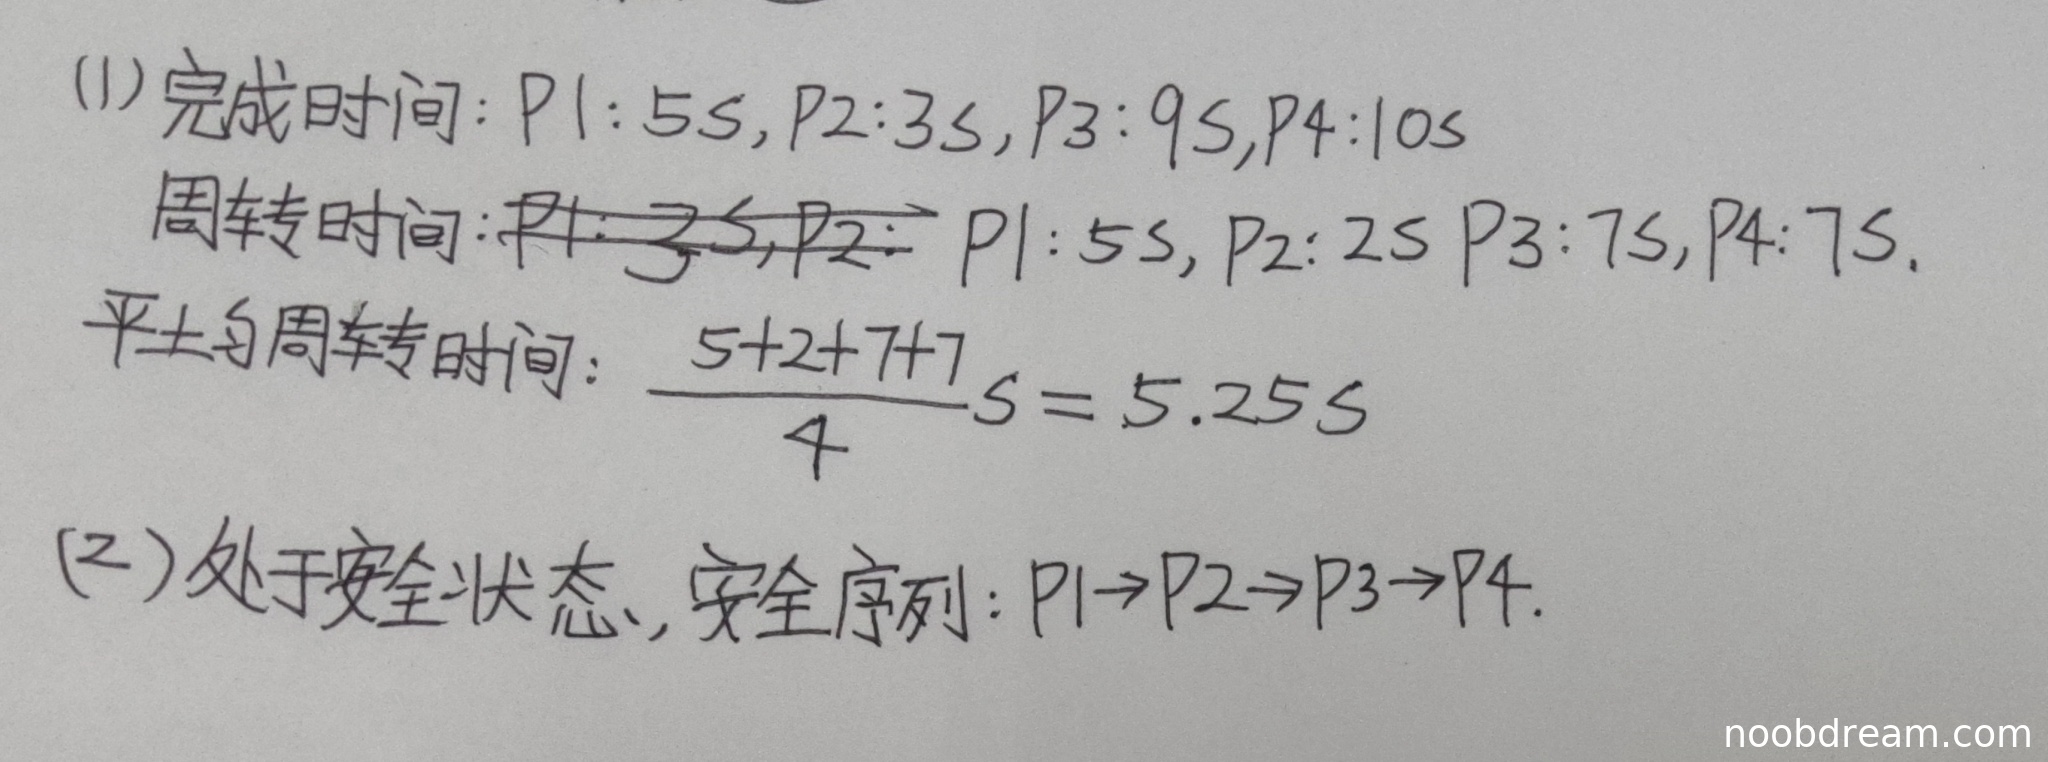 (1) 完成时间: P1: 5s, P2: 3s, P3: 9s, P4: 10s
周转时间: P1: 5s, P2: 2s P3: 7s, P4: 7s.
平均周转时间: \frac{5+2+7+7}{4} s = 5.25s
(2) 处于安全状态, 安全序列: P1→P2→P3→P4.
noobdream.com